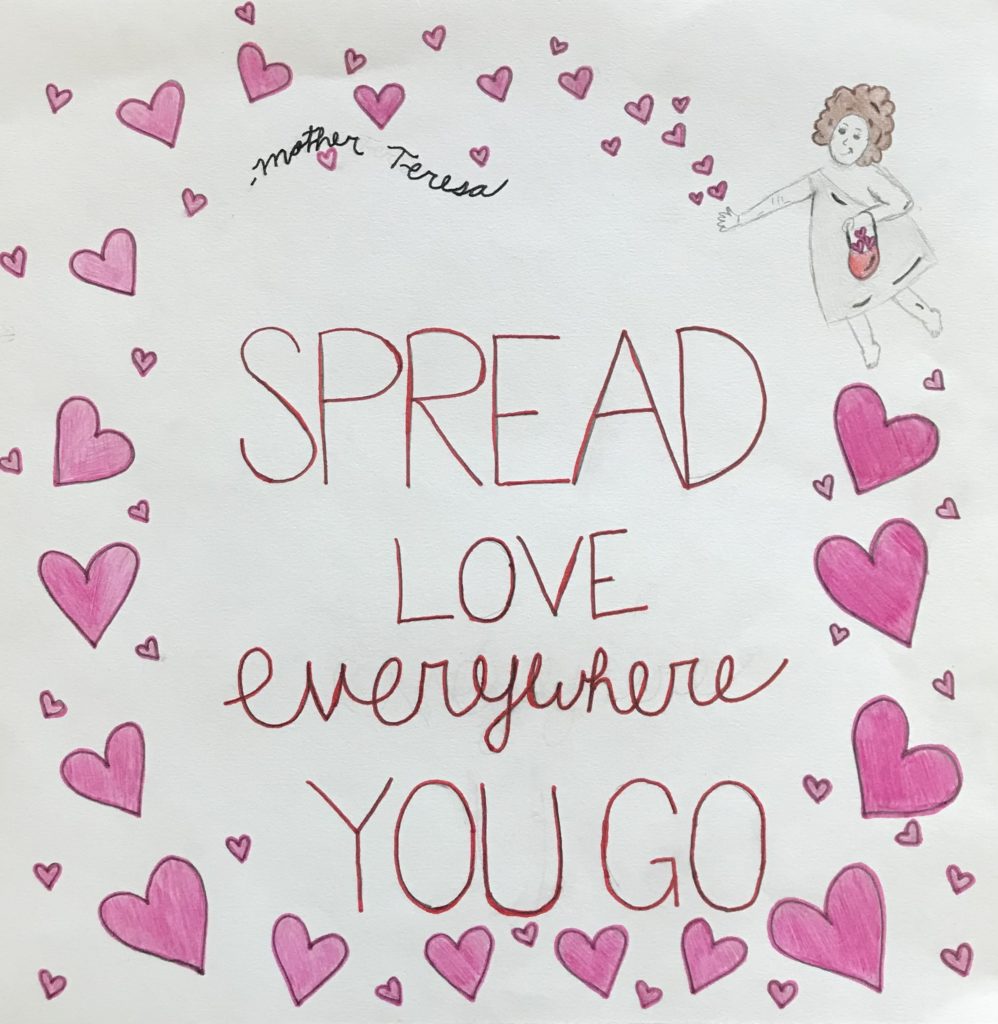 mother Teresa
SPREAD
LOVE
everywhere
YOU GO